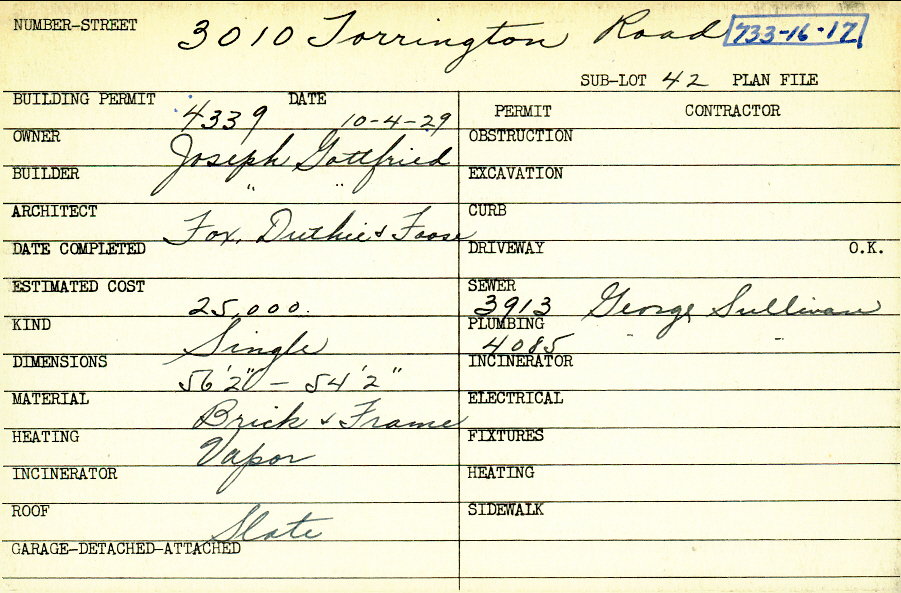 NUMBER-STREET 3010 Torrington Road 733-16-17
SUB-LOT 42 PLAN FILE
BUILDING PERMIT 4339 DATE 10-4-29
PERMIT CONTRACTOR
OWNER Joseph Gottfried
OBSTRUCTION
BUILDER " "
EXCAVATION
ARCHITECT Fox, Duthie & Foose
CURB
DATE COMPLETED
DRIVEWAY O.K.
ESTIMATED COST 25,000.
SEWER 3913 George Sullivan
KIND Single
PLUMBING 4085 " "
DIMENSIONS 56'2" - 54'2"
INCINERATOR
MATERIAL Brick & Frame
ELECTRICAL
HEATING Vapor
FIXTURES
INCINERATOR
HEATING
ROOF Slate
SIDEWALK
GARAGE-DETACHED-ATTACHED